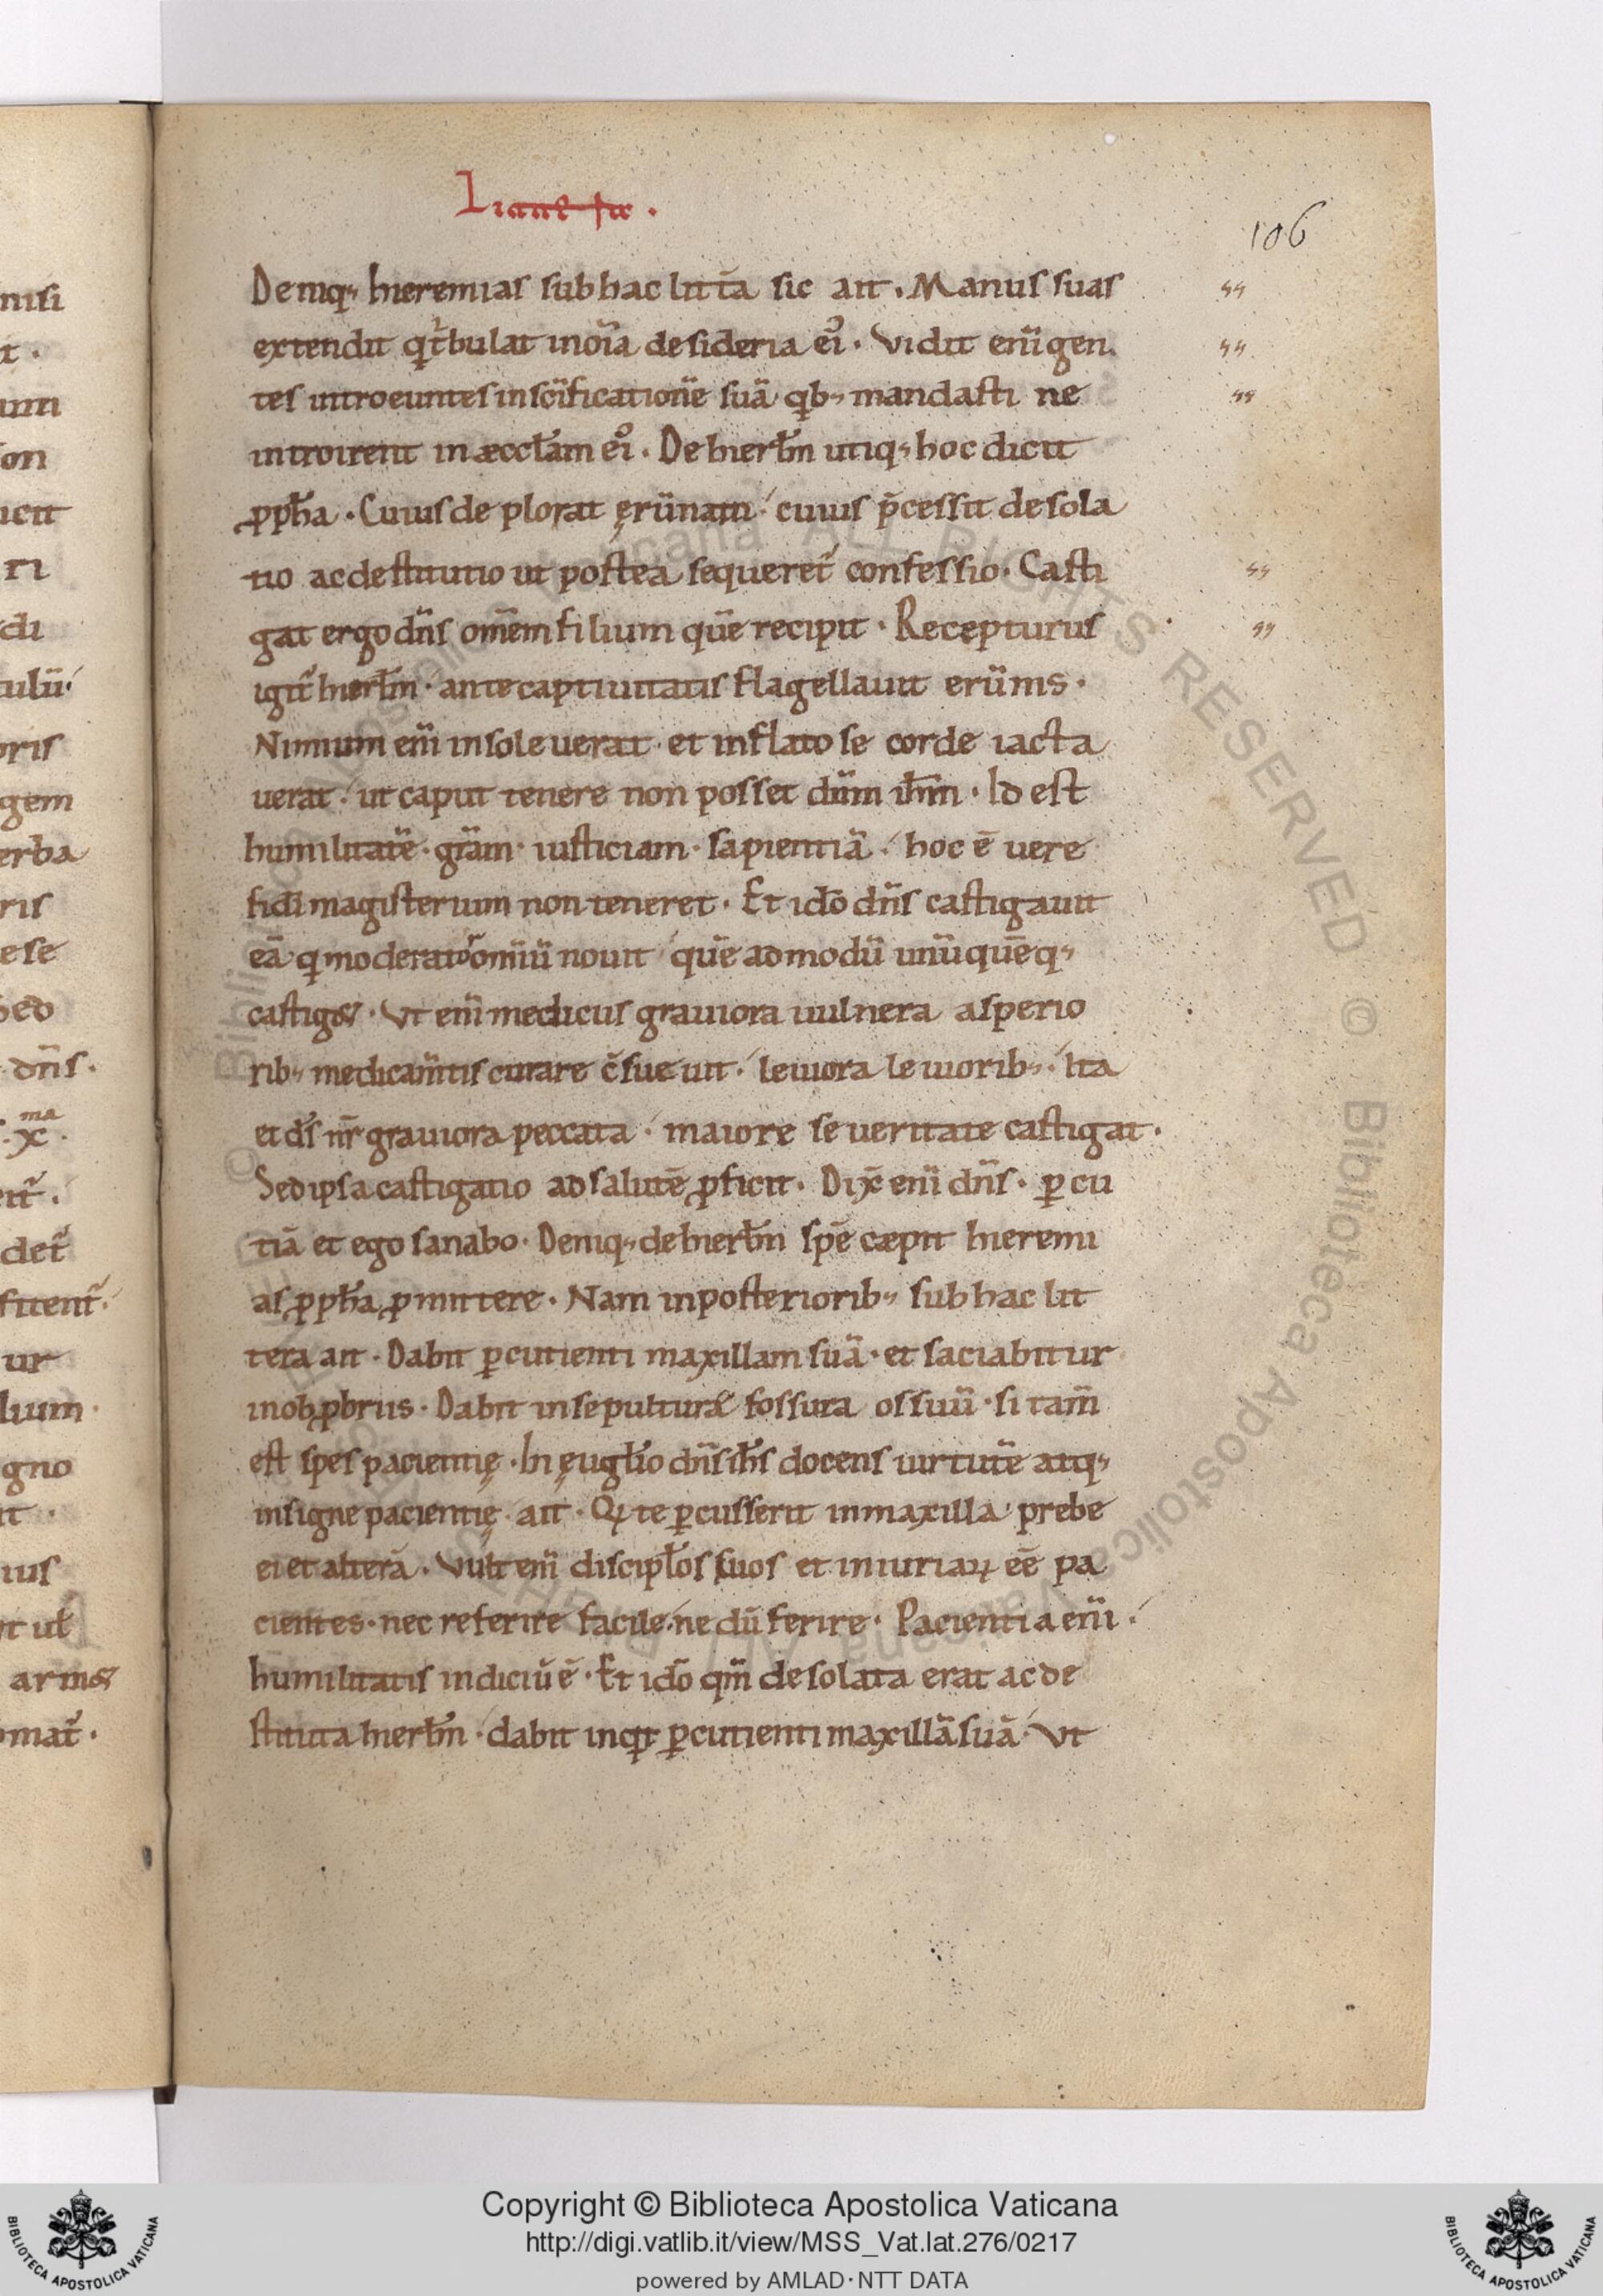 106
Deniq; hieremias sub hac litt̄a sic ait. Manus suas
extendit q' t̄bulat in om̄ia desideria ei'. Vidit eni̅ gen
tes introeuntes in sc̄ificatione̅ sua̅ qb; mandasti ne
introirent in æccl̄am ei'. De hierl̄m utiq; hoc dicit
ꝓph̄a. Cuius deplorat ęru̅nam. cuius p̄cessit desola
tio ac destitutio ut postea sequeret᷑ confessio. Casti
gat ergo dn̄s om̄em filium que̅ recipit. Recepturus
igit᷑ hierl̄m. ante captiuitatis flagellauit eru̅nis.
Nimium eni̅ insoleuerat. et inflato se corde iacta
uerat. ut caput tenere non posset dn̄m ih̄m. Id est
humilitate̅. gr̄am. iusticiam. sapientia̅. hoc ē uere
fidei magisterium non teneret. Et id̄o dn̄s castigauit
ea̅ q' moderator om̄iu̅ nouit que̅ admodu̅ unu̅que̅q;
castig&. Vt eni̅ medicus grauiora uulnera asperio
rib; medicam̄tis curare c̄sueuit. leuiora leuiorib;. Ita
et ds̄ nr̄ grauiora peccata. maiore seueritate castigat.
Sed ipsa castigatio ad salute̅ ꝓficit. Dix̄ eni̅ dn̄s. ꝑcu
tia̅ et ego sanabo. Deniq; de hierl̄m spe̅ cæpit hieremi
as ꝓph̄a ꝓmittere. Nam in posteriorib; sub hac lit
tera ait. Dabit ꝑcutienti maxillam sua̅. et saciabitur
in obꝓbriis. Dabit in sepultura̅ fossura ossuu̅. si tam̄
est spes pacientię. In ęugl̄io dn̄s ih̄s docens uirtute̅ atq;
insigne pacientię. ait. Qi te ꝑcusserit in maxilla prebe
ei et altera̅. Vult eni̅ discipl̄os suos et iniuriaꝝ ēe pa
cientes. nec referire facile. ne du̅ ferire. Pacientia eni̅.
humilitatis indiciu̅ ē. Et id̄o qm̄ desolata erat ac de
stituta hierl̄m. dabit inqt ꝑcutienti maxilla̅ sua̅. Vt
Copyright © Biblioteca Apostolica Vaticana
http://digi.vatlib.it/view/MSS_Vat.lat.276/0217
powered by AMLAD·NTT DATA